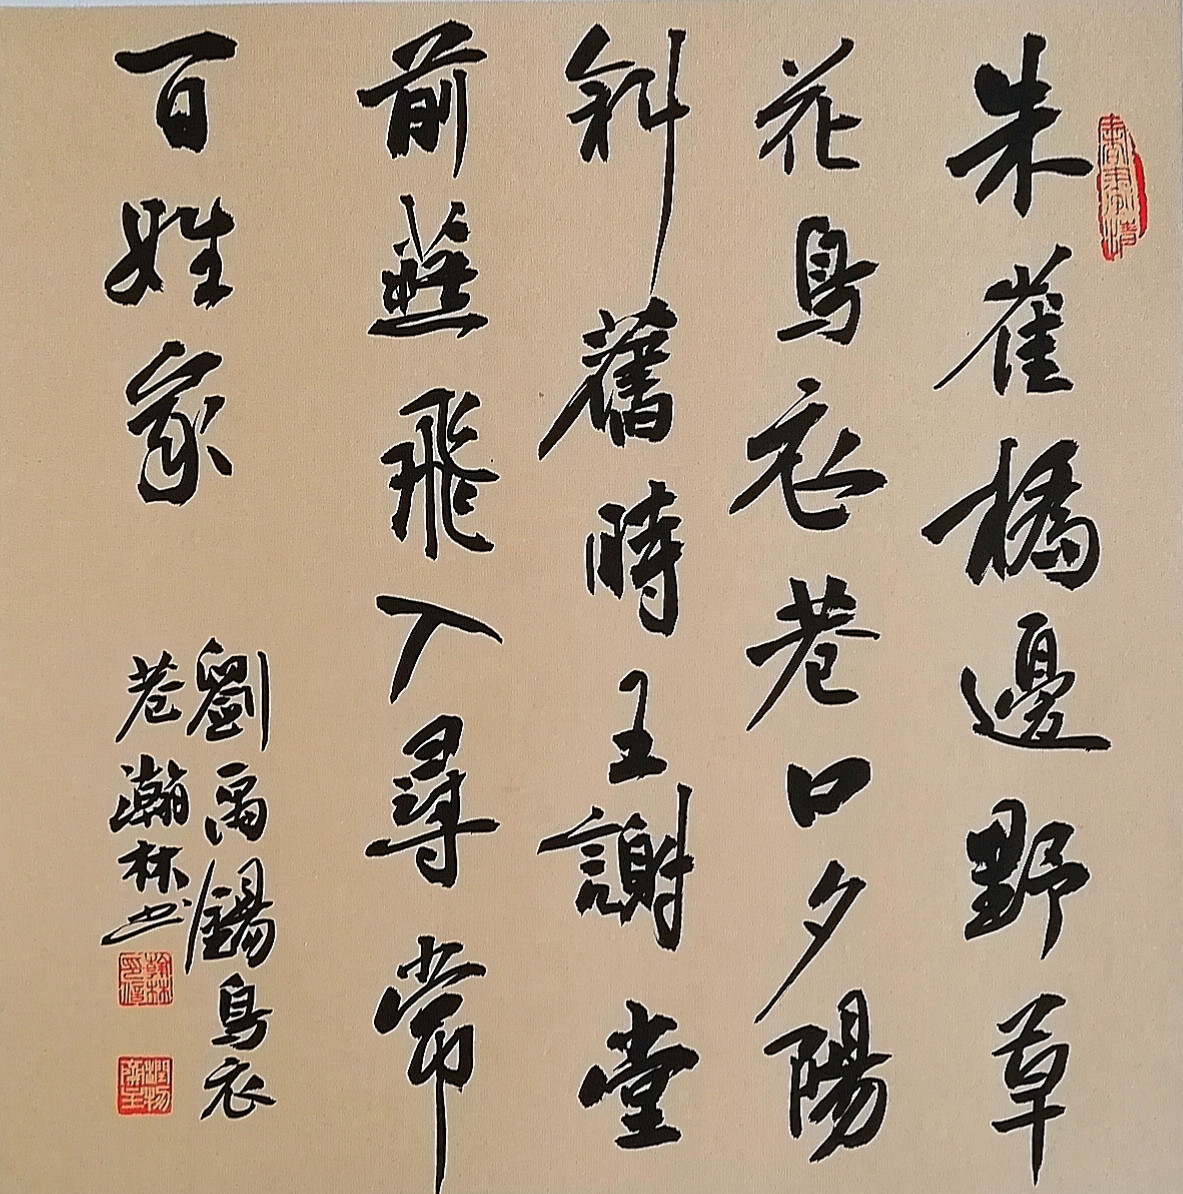 朱雀橋邊野草
花烏衣巷口夕陽
斜舊時王謝堂
前燕飛入尋常
百姓家
劉禹錫烏衣
巷瀚林书